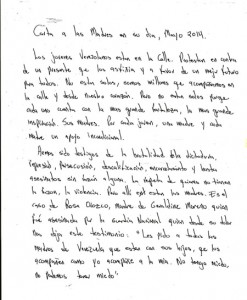 Carta a las Madres en su día, Mayo 2014.
Los jóvenes Venezolanos están en la calle. Protestan en contra
de un presente que los asfixia y a favor de un mejor futuro
para todos. No están solos, somos millones que acompañamos en
la calle y desde nuestro corazón. Pero no están solos porque
cada uno cuenta con la mas grande fortaleza, la mas grande
inspiración. Sus madres. Por cada joven, una madre y cada
madre un apoyo incondicional.
Hemos sido testigos de la brutalidad de la dictadura,
represión, persecución, encarcelamiento y tantos
asesinatos sin razón alguna. La injusticia de quienes no tienen
la razón, la violencia. Para allí están las madres. Es el
caso de Rosa Orozco, madre de Geraldine Moreno quien
fue asesinada por la Guardia Nacional quien desde su dolor
nos dijo este testimonio: "Les pido a todas las
madres de Venezuela que estén con sus hijos, que los
acompañen como yo acompañé a la mía. No tengo miedo,
no podemos tener miedo"